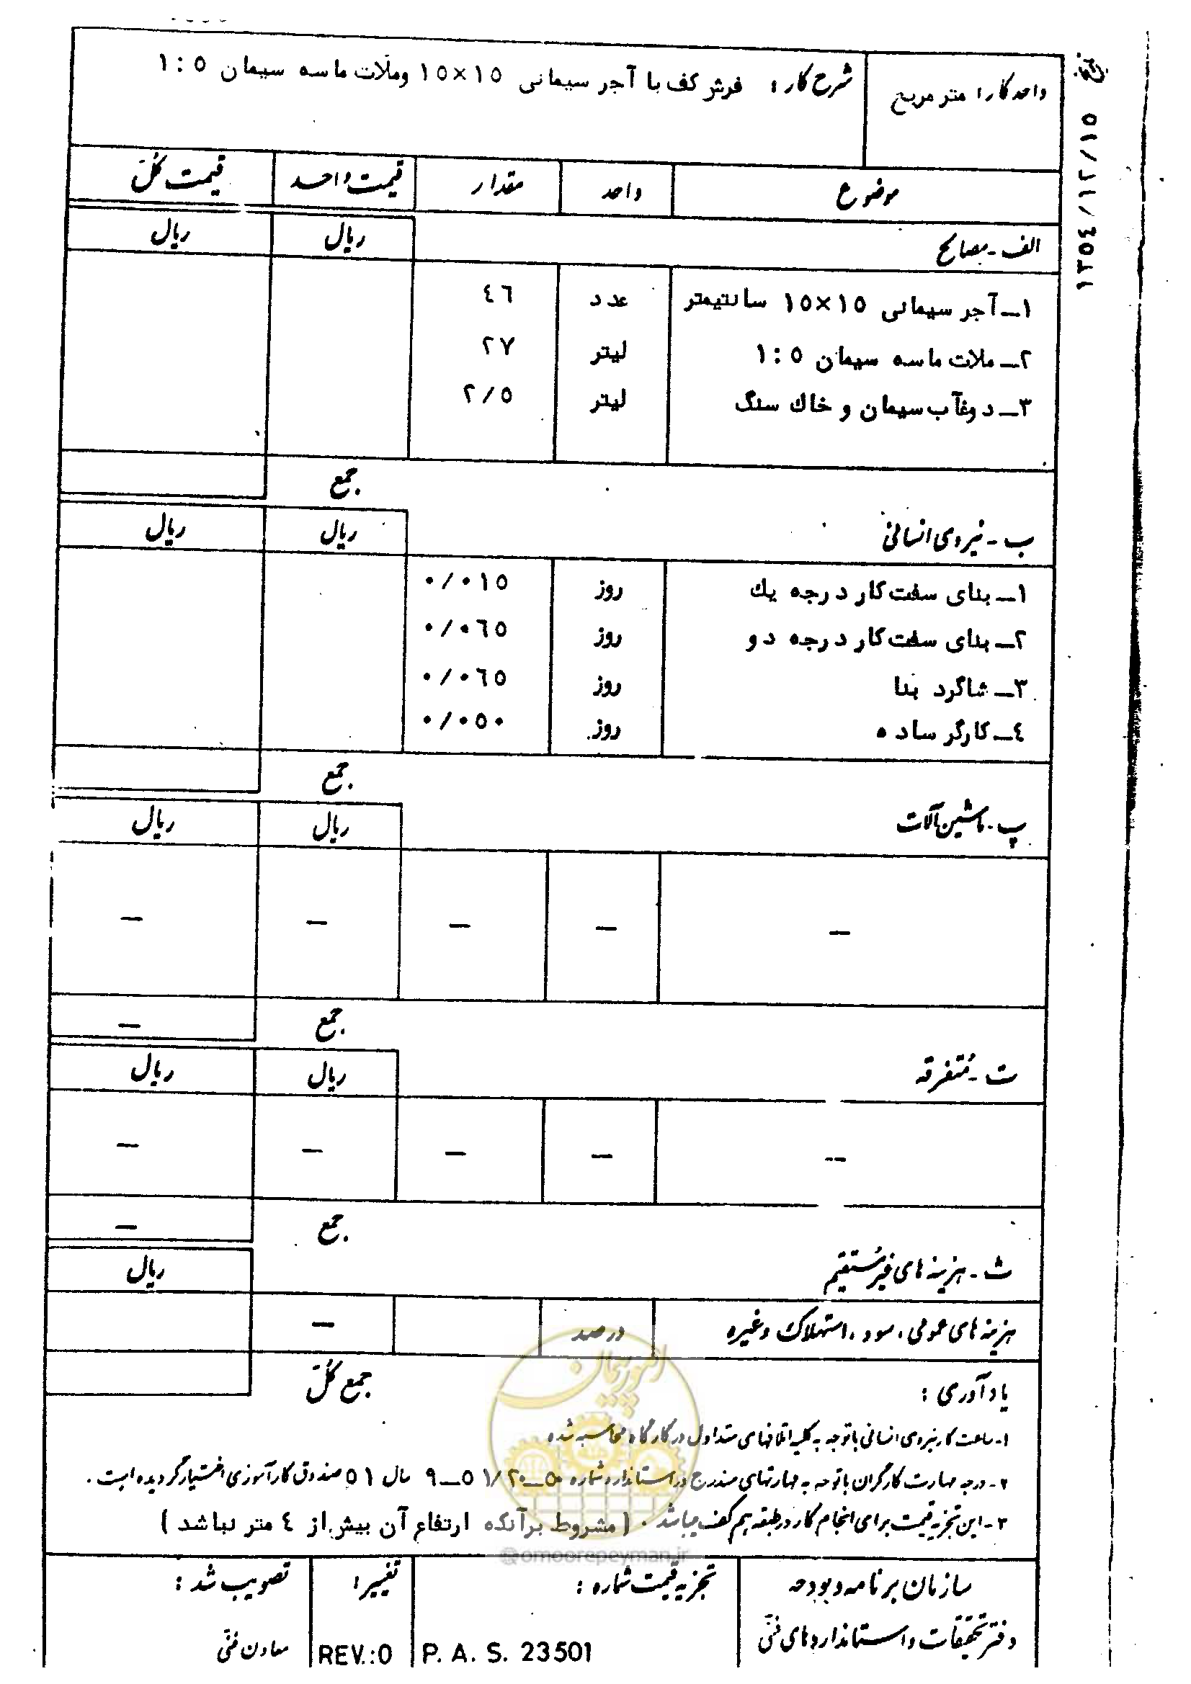 واحد کار: متر مربع
شرح کار: فرش کف با آجر سیمانی ١٥×١٥ وملات ماسه سیمان ٥ : ١
تاریخ ١٣٥٤/١٢/١٥
موضوع واحد مقدار قیمت واحد قیمت کلّ
الف - مصالح ریال ریال
١ــ آجر سیمانی ١٥×١٥ سانتیمتر عدد ٤٦
٢ــ ملات ماسه سیمان ٥ : ١ لیتر ٢٧
٣ــ دوغآب سیمان و خاك سنگ لیتر ٢/٥
جمع
ب - نیروی انسانی ریال ریال
١ــ بنای سفت کار درجه یك روز ٠/٠١٥
٢ــ بنای سفت کار درجه دو روز ٠/٠٦٥
٣ــ شاگرد بنا روز ٠/٠٦٥
٤ــ کارگر ساده روز ٠/٠٥٠
جمع
پ - ماشین آلات ریال ریال
— — — — —
جمع —
ت - مُتفرقه ریال ریال
-- — — — —
جمع —
ث - هزینه های غیرمُستقیم ریال
هزینه های عمومی ، سود ، استهلاک وغیره درصد —
جمع کلّ
یادآوری :
١- ساعت کار نیروی انسانی با توجه به کلیه اتلافهای متداول در کارگاه محاسبه شده
٢- درجه مهارت کارگران با توجه به مهارتهای مندرج در استاندارد شماره ٥٠ــ٢٠/٥١ــ٩ سال ٥١ صندوق کارآموزی اختیار گردیده است .
٣- این تجزیه قیمت برای انجام کار در طبقه هم کف میباشد . ( مشروط برآنکه ارتفاع آن بیش از ٤ متر نباشد )
امور پیمان
@omoorepeyman.ir
سازمان برنامه و بودجه
دفتر تحقیقات و استانداردهای فنّی
تجزیه قیمت شماره :
P. A. S. 23501
تغییر :
REV.:0
تصویب شد :
معاون فنّی